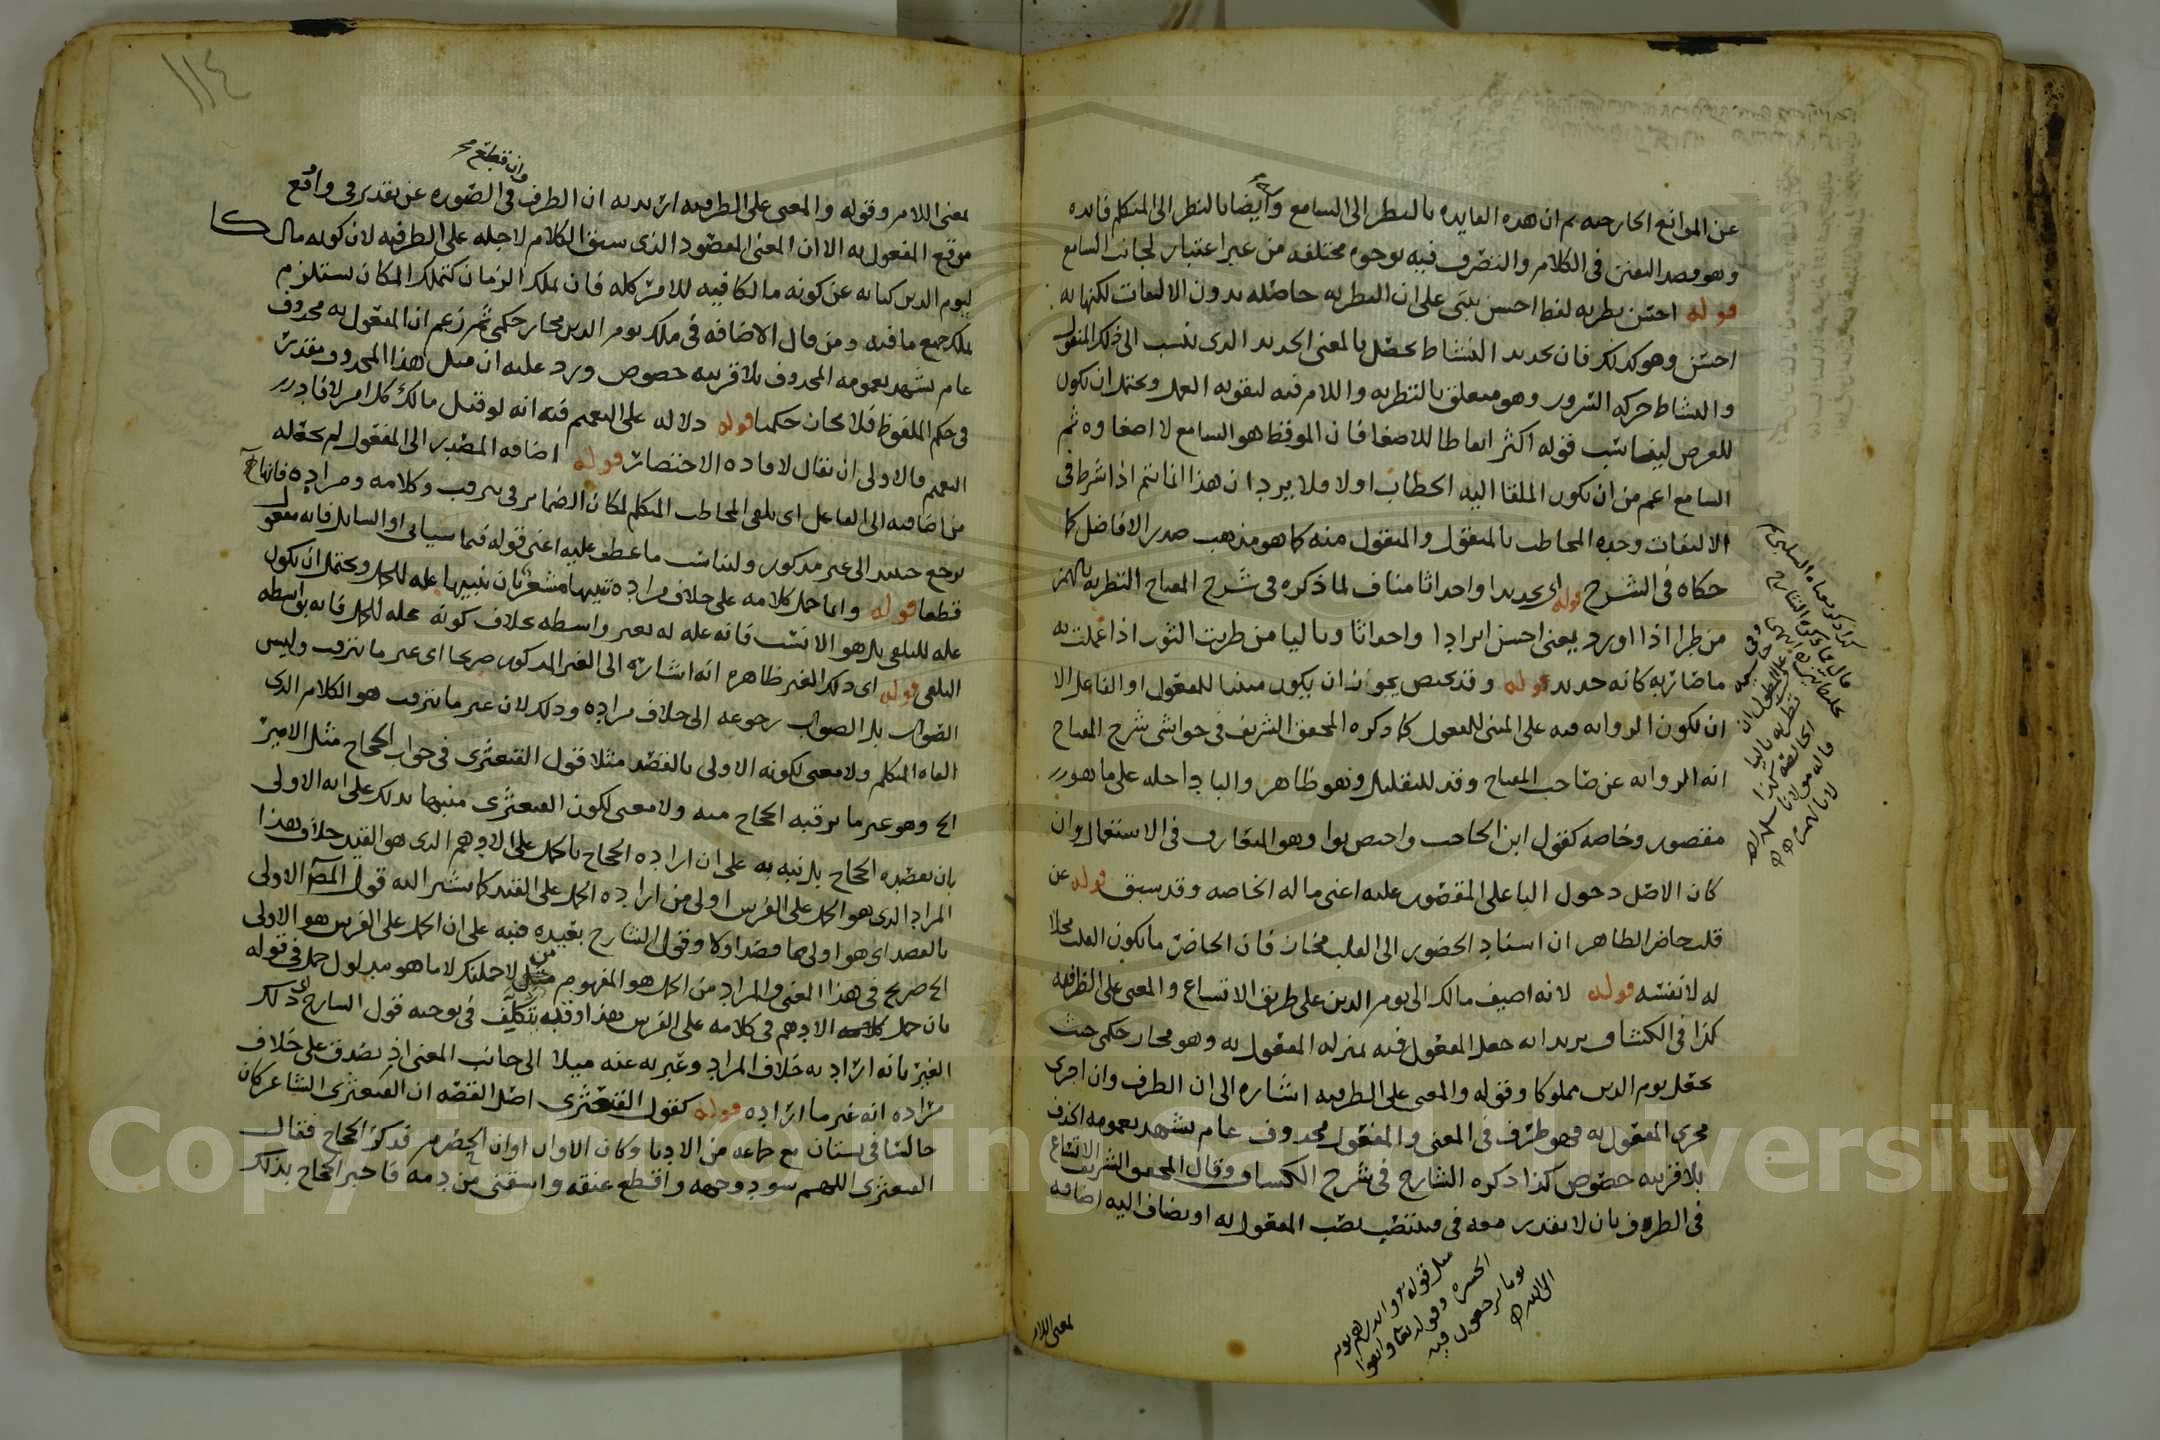 عن الموانع الخارجية ثم ان هذه الفايدة بالنظر الى السامع وايضا بالنظر الى المتكلم فايدة
وهو قصد التفنن فى الكلام والتصرف فيه بوجوه مختلفة من غير اعتبار لجانب السامع
قوله احسن تطرية لفظ احسن يبنى على ان التطرية حاصلة بدون الالتفات لكنها به
احسن وهو كذلك فان تجديد النشاط يحصل بالمعنى الجديد الذى ينسب الى ذلك المنقول
والنشاط حركة السرور وهو متعلق بالتطرية واللام فيه لتقوية العمل ويحتمل ان يكون
للغرض ليناسب قوله اكثر ايقاظا للاصغا فان الموقظ هو السامع لا اصغاوه ثم
السامع اعم من ان يكون الملقا اليه الخطاب اولا فلا يرد ان هذا انما يتم اذا شرط فى
الالتفات وحدة المخاطب بالمنقول والمنقول منه كما هو مذهب صدر الافاضل كما
حكاه فى الشرح قوله اى تجديدا واحداثا مناف لما ذكره فى شرح المفتاح التطرية بالهمز
من طرا اذا اورد بمعنى احسن ايرادا واحداثا وباليا من طريت الثوب اذا عملت به
ما صار به كانه جديد قوله وقد يختص يجوز ان يكون مبنيا للمفعول او الفاعل الا
ان تكون الرواية فيه على المبنى للمفعول كما ذكره المحقق الشريف فى حواشى شرح المفتاح
انه الرواية عن صاحب المفتاح وقد للتقليل وهو ظاهر والبا داخلة على ما هو
مقصور وخاصة كقول ابن الحاجب واختص بوا وهو المتعارف فى الاستعمال وان
كان الاصل دخول البا على المقصور عليه اعنى ماله الخاصة وقد سبق قوله عن
قلب حاضر الظاهر ان اسناد الحضور الى القلب مجاز فان الحاضر ما يكون القلب محلا
له لا نفسه قوله لانه اضيف مالك الى يوم الدين على طريق الاتساع والمعنى على الظرفية
كذا فى الكشاف يريد انه جعل المفعول فيه بمنزلة المفعول به وهو مجاز حكمى حيث
جعل يوم الدين مملوكا وقوله والمعنى على الظرفية اشارة الى ان الظرف وان اجرى
مجرى المفعول به فهو ظرف فى المعنى والمفعول محذوف عام يشهد بعمومه الحذف
بلا قرينة خصوص كذا ذكره الشارح فى شرح الكشاف وقال المحقق الشريف الاتساع
فى الظرف بان لا يقدر معه فى فينتصب نصب المفعول به او يضاف اليه اضافة
بمعنى اللام
١١٤
وان قطع
بمعنى اللام وقوله والمعنى على الظرفية اريد به ان الظرف فى الصورة عن تقدير فى واقع
موقع المفعول به الا ان المعنى المقصود الذى سيق الكلام لاجله على الظرفية لان كونه مالكا
ليوم الدين كناية عن كونه مالكا فيه للامر كله فان تملك الزمان كتملك المكان يستلزم
تملك جميع ما فيه ومن قال الاضافة فى ملك يوم الدين مجاز حكمى ثم زعم ان المفعول به محذوف
عام يشهد بعمومه المحذوف بلا قرينة خصوص ورد عليه ان مثل هذا المحذوف مقدر
فى حكم الملفوظ فلا مجاز حكميا قوله دلالة على التعميم فيه انه لو قيل مالك كل امر لافاد
التعميم فالاولى ان يقال لافادة الاختصار قوله اضافة المصدر الى المفعول لم يجعله
من اضافته الى الفاعل اى تلقى المخاطب المتكلم لمكان الضماير فى يترقب وكلامه ومراده فانها ح
ترجع حينئذ الى غير مذكور وليناسب ما عطف عليه اعنى قوله فيما سياتى او السايل فانه مفعول
قطعا قوله وانما حمل كلامه على خلاف مراده تنبيها مشعر بان تنبيها علة للحمل ويحتمل ان يكون
علة للتلقى بل هو الانسب فانه علة له بغير واسطة بخلاف كونه علة للحمل فانه بواسطة
التلقى قوله اى ذلك الغير ظاهره انه اشارة الى الغير المذكور صريحا اى غير ما يترقب وليس
الصواب بل الصواب رجوعه الى خلاف مراده وذلك لان غير ما يترقب هو الكلام الذى
القاه المتكلم ولا معنى لكونه الاولى بالقصد مثلا قول القبعثرى فى جواب الحجاج مثل الامير
الخ وهو غير ما يرقبه الحجاج منه ولا معنى لكون القبعثرى منبها بذلك على انه الاولى
بان يقصده الحجاج بل نبه به على ان ارادة الحجاج بالحمل على الادهم الذى هو القيد خلاف هذا
المراد الذى هو الحمل على الفرس اولى من ارادة الحمل على القيد كما يشير اليه قول المص الاولى
بالقصد اى هو اولى بها قصدا وكذا وقول الشارح بقيده فنبه على ان الحمل على الفرس هو الاولى
الخ صريح فى هذا المعنى والمراد من الحمل هو المفهوم من لاحملنك لا ما هو مدلول حمل فى قوله
بان حمل الادهم فى كلامه على الفرس هذا وقد يتكلف فى توجيه قول الشارح اى ذلك
الغير بانه اراد به خلاف المراد وعبر به عنه ميلا الى جانب المعنى اذ يصدق على خلاف
مراده انه غير ما اراده قوله كقول القبعثرى اصل القصة ان القبعثرى الشاعر كان
جالسا فى بستان مع جماعة من الادبا وكان الاوان اوان الحصرم فذكر الحجاج فقال
القبعثرى اللهم سود وجهه واقطع عنقه واسقنى من دمه فاخبر الحجاج بذلك
Copyright © King Saud University